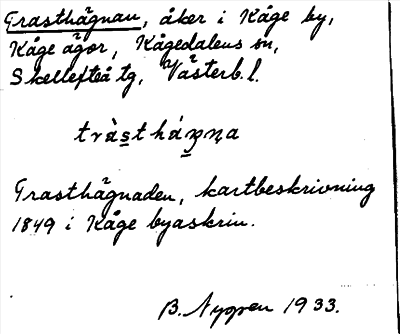 Trasthägnan, åker i Kåge by,
Kåge ägor, Kågedalens sn,
Skellefteå tg, Västerb. l.
Trasthägnaden, kartbeskrivning
1849 i Kåge byaskrin.
B. Nygren 1933.